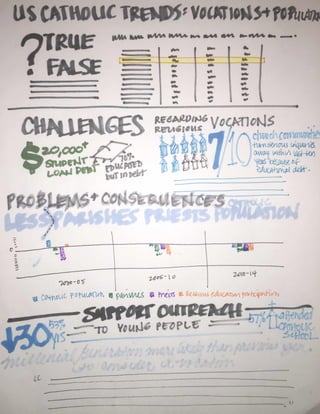 US CATHOLIC TRENDS: VOCATIONS + POPULATION
? TRUE
FALSE
CHALLENGES
$20,000+
STUDENT
LOAN DEBT
70%
EDUCATED
BUT IN DEBT
REGARDING VOCATIONS
RELIGIOUS
7/10
church communities
turn serious inquiries
away within last ten
years because of
educational debt.
PROBLEMS + CONSEQUENCES
LESS PARISHES PRIESTS POPULATION
CATHOLIC
2000-05
2005-10
2010-14
CATHOLIC POPULATION
PARISHES
PRIESTS
RELIGIOUS EDUCATION PARTICIPATION
SUPPORT OUTREACH
TO YOUNG PEOPLE
↓30 YRS
53%
57% attended
Catholic
School
millennial generation more likely than previous gen.
to consider a vocation